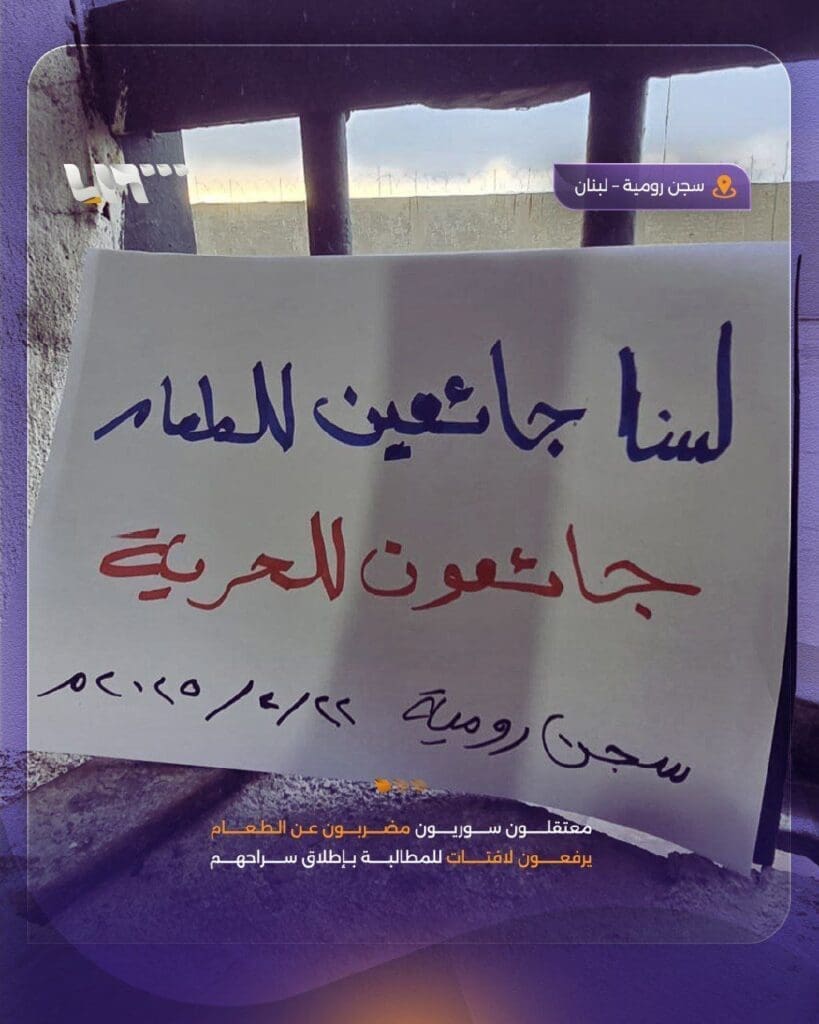 سجن رومية - لبنان
لسنا جائعين للطعام
جائعون للحرية
سجن رومية ٢٢/٤/٢٠٢٥م
معتقلـون سـوريـون مضـربـون عـن الطـعـام
يرفعـون لافتـات للمطالبـة بـإطلاق سـراحهـم